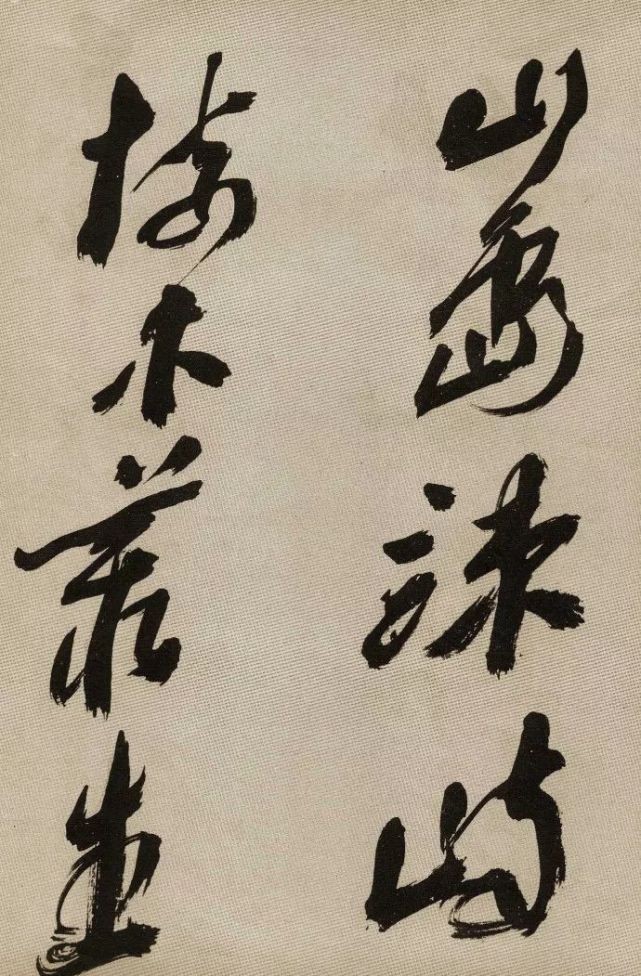 山岛竦峙
树木丛生